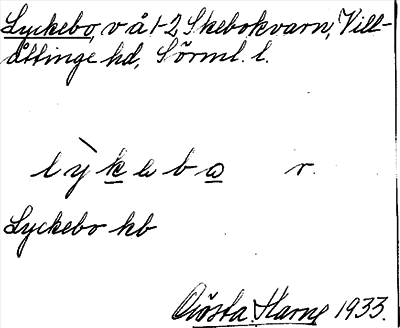 Lyckebo, v å 1-2 Skebokvarn, Vill-
åttinge hd, Sörml. l.
lỳkeba r.
Lyckebo hb
Gösta Harne 1933.